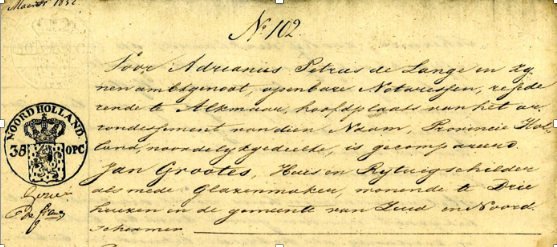 Maart 1832
No 102.
Voor Adrianus Petrus de Lange en zy
nen ambtgenoot, openbare Notarissen, reside
rende te Alkmaar, hoofdplaats van het ar
rondissement van dien Naam, Provincie Hol
land, noordelyk gedeelte, is gecompareerd
NOORD HOLLAND
38 OPC
Jan Grootes, Huis en Rytuigschilder
als mede Glazenmaker, wonende te Drie
huizen in de gemeente van Zuid en Noord
Schermer